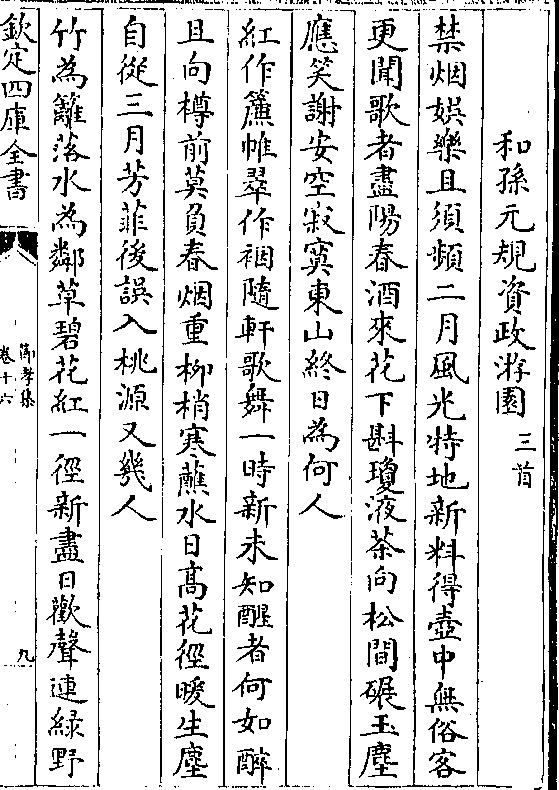 和孫元規資政游園三首
禁烟娯樂且須頻二月風光特地新料得壺中無俗客
更聞歌者盡陽春酒來花下斟瓊液茶向松間碾玉塵
應笑謝安空寂寞東山終日為何人
紅作簾帷翠作裀隨軒歌舞一時新未知醒者何如醉
且向樽前莫負春烟重柳梢寒蘸水日髙花徑暖生塵
自從三月芳菲後誤入桃源又幾人
竹為籬落水為鄰草碧花紅一徑新盡日歡聲連緑野
欽定四庫全書
節孝集
卷十六
九